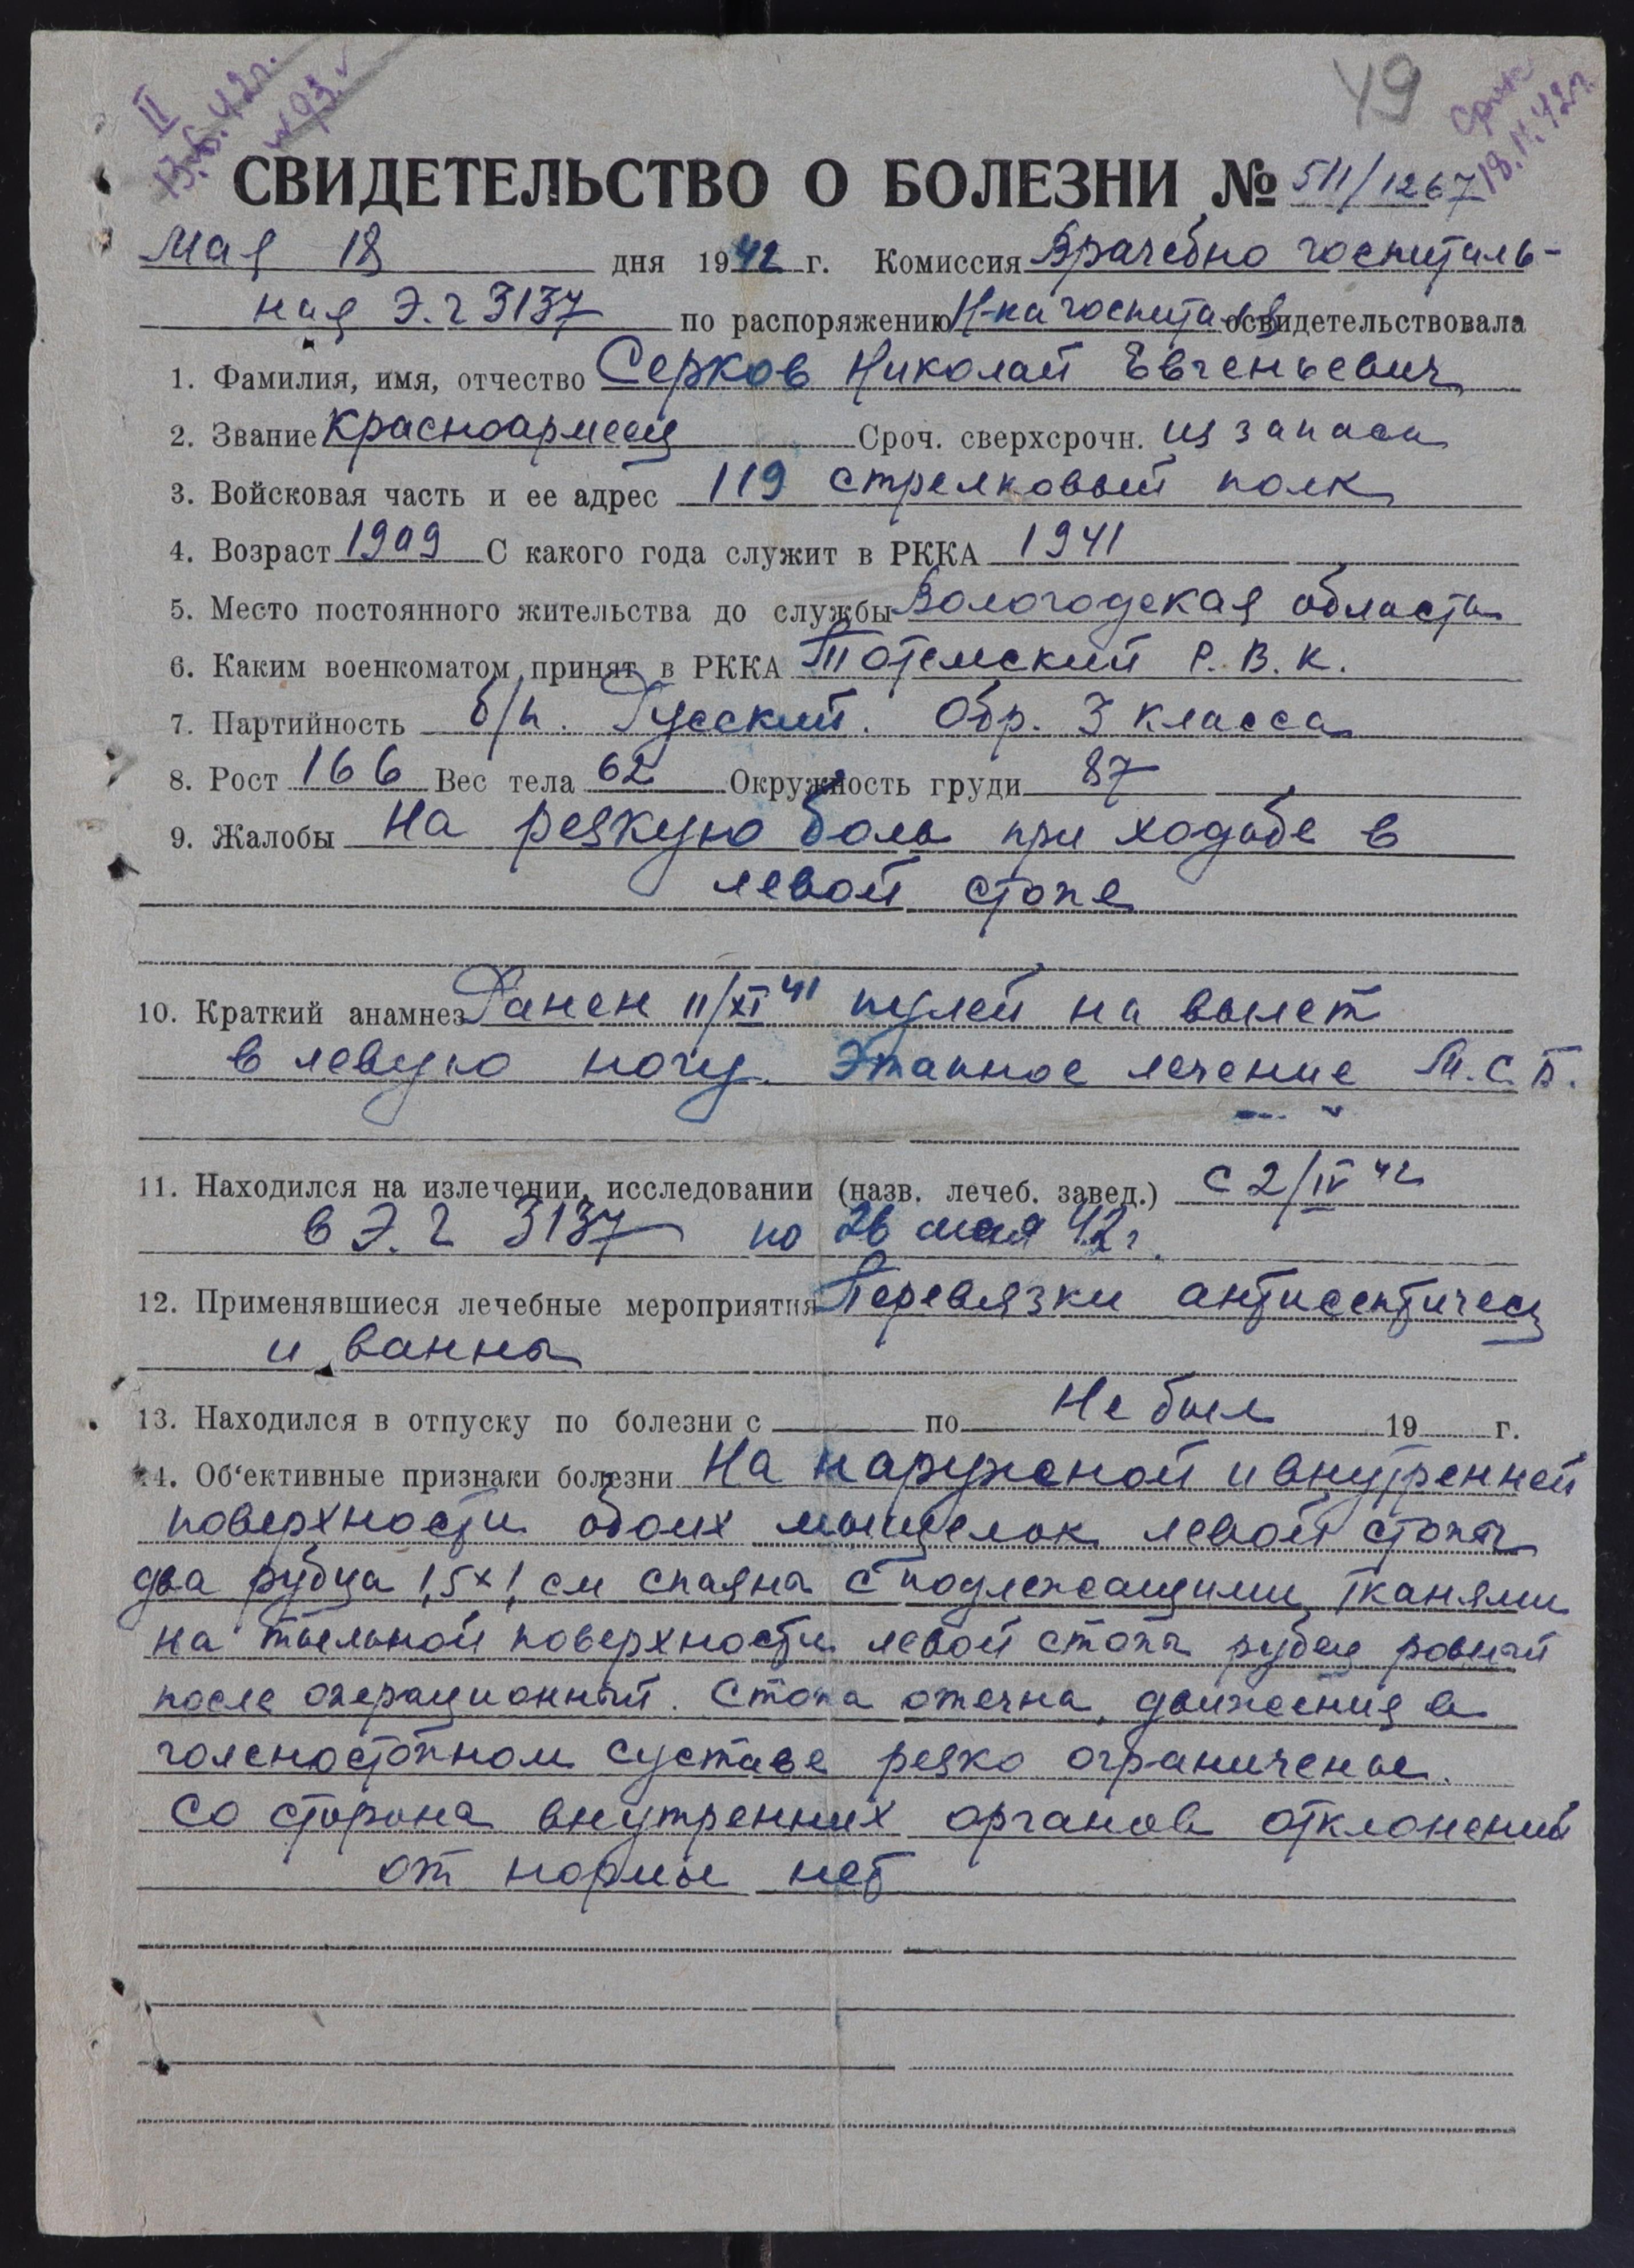 II
13.6.42г.
№ 93.
49
Срок
18.11.42г.
СВИДЕТЕЛЬСТВО О БОЛЕЗНИ № 511/1267
Мая 18 дня 1942 г. Комиссия Врачебно госпиталь-
ная Э.Г 3137 по распоряжению Н-ка госпиталя освидетельствовала
1. Фамилия, имя, отчество Серков Николай Евгеньевич
2. Звание Красноармеец Сроч. сверхсрочн. из запаса
3. Войсковая часть и ее адрес 119 стрелковый полк
4. Возраст 1909 С какого года служит в РККА 1941
5. Место постоянного жительства до службы Вологодская область
6. Каким военкоматом принят в РККА Тотемский Р.В.К.
7. Партийность б/п. Русский. Обр. 3 класса
8. Рост 166 Вес тела 62 Окружность груди 87
9. Жалобы На резкую боль при ходьбе в
левой стопе
10. Краткий анамнез Ранен 11/XI 41 пулей на вылет
в левую ногу. Этапное лечение М.С.Б.
11. Находился на излечении, исследовании (назв. лечеб. завед.) с 2/IV 42
в Э.Г 3137 по 26 мая 42 г.
12. Применявшиеся лечебные мероприятия Перевязки антисептическ
и ванны
13. Находился в отпуску по болезни с по Не был 19 г.
14. Об‘ективные признаки болезни На наружной и внутренней
поверхности обоих мыщелок левой стопы
два рубца 1,5×1 см спаяны с подлежащими тканями
на тыльной поверхности левой стопы рубец ровный
после операционный. Стопа отечна, движения в
голеностопном суставе резко ограничены.
Со стороны внутренних органов отклонений
от нормы нет